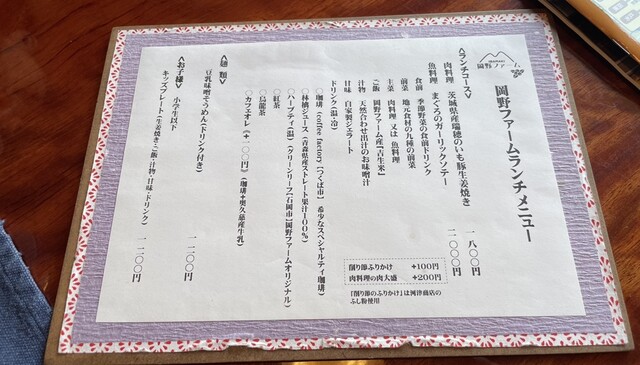 岡野ファーム
岡野ファームランチメニュー
<ランチコース>
肉料理 茨城県産瑞穂のいも豚生姜焼き 一八〇〇円
魚料理 まぐろのガーリックソテー 二〇〇〇円
食前 季節野菜の食前ドリンク
前菜 地元食材の九種の前菜
主菜 肉料理 又は 魚料理
ご飯 岡野ファーム産【古生米】
汁物 天然合わせ出汁のお味噌汁
甘味 自家製ジェラート
ドリンク(温・冷)
〇珈琲 (coffee factory 【つくば市】 希少なスペシャルティ珈琲)
〇林檎ジュース (青森県産ストレート果汁100%)
〇ハーブティ(温) (グリーンリーフ【石岡市】岡野ファームオリジナル)
〇紅茶
〇烏龍茶
〇カフェオレ (+100円) (珈琲+奥久慈産牛乳)
削り節ふりかけ +100円
肉料理の肉大盛 +200円
『削り節のふりかけ』は河津商店の
ふし粉使用
<麺類>
豆乳味噌そうめん(ドリンク付き) 一二〇〇円
<お子様> 小学生以下
キッズプレート(生姜焼き・ご飯・汁物・甘味・ドリンク) 一二〇〇円